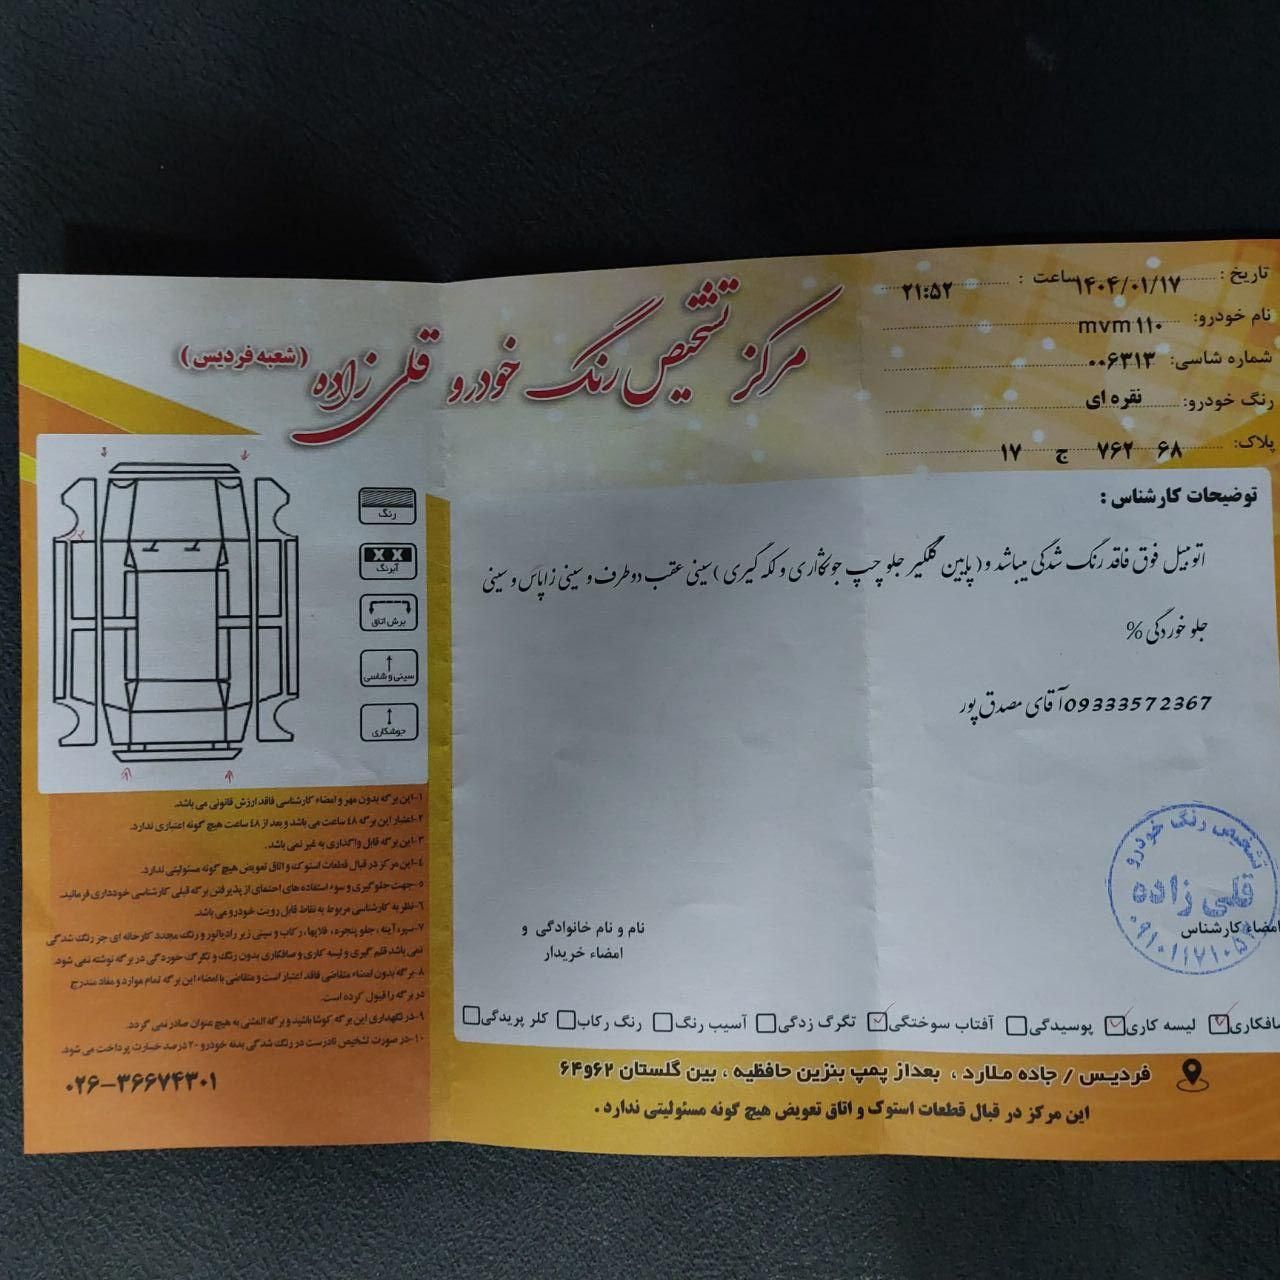 تاریخ : ۱۴۰۴/۰۱/۱۷ ساعت : ۲۱:۵۲
نام خودرو: mvm ۱۱۰
شماره شاسی: ۰۰۶۳۱۳
رنگ خودرو: نقره ای
پلاک: ۶۸ ۷۶۲ ج ۱۷
مرکز تشخیص رنگ خودرو قلی زاده (شعبه فردیس)
توضیحات کارشناس :
اتومبیل فوق فاقد رنگ شدگی میباشد و( پایین گلگیر جلو چپ جوشکاری و لکه گیری )سینی عقب دو طرف و سینی زاپاس و سینی
جلو خوردگی %
09333572367آقای مصدق پور
رنگ
X X
آبرنگ
برش اتاق
سینی و شاسی
جوشکاری
۱-این برگه بدون مهر و امضاء کارشناسی فاقد ارزش قانونی می باشد.
۲-اعتبار این برگه ۴۸ ساعت می باشد و بعد از ۴۸ ساعت هیچ گونه اعتباری ندارد.
۳-این برگه قابل واگذاری به غیر نمی باشد.
۴-این مرکز در قبال قطعات استوک و اتاق تعویض هیچ گونه مسئولیتی ندارد.
۵-جهت جلوگیری و سوء استفاده های احتمالی از پذیرفتن برگه قبلی کارشناسی خودداری فرمائید.
۶-نظریه کارشناسی مربوط به نقاط قابل رویت خودرو می باشد.
۷-سپر، آینه ، جلو پنجره، قلابها، رکاب و سینی زیر رادیاتور و رنگ مجدد کارخانه ای جز رنگ شدگی
نمی باشد قلم گیری و لیسه کاری و صافکاری بدون رنگ و تگرگ خوردگی در برگه نوشته نمی شود.
۸-برگه بدون امضاء متقاضی فاقد اعتبار است و متقاضی با امضاء این برگه تمام موارد و مفاد مندرج
در برگه را قبول کرده است.
۹-در نگهداری این برگه کوشا باشید و برگه المثنی به هیچ عنوان صادر نمی گردد.
۱۰-در صورت تشخیص نادرست در رنگ شدگی بدنه خودرو ۲۰ درصد خسارت پرداخت می شود.
۰۲۶-۳۶۶۷۴۳۰۱
تشخیص رنگ خودرو
قلی زاده
امضاء کارشناس
نام و نام خانوادگی و
امضاء خریدار
صافکاری لیسه کاری پوسیدگی آفتاب سوختگی تگرگ زدگی آسیب رنگ رنگ رکاب کلر پریدگی
فردیس / جاده ملارد ، بعداز پمپ بنزین حافظیه ، بین گلستان ۶۲و۶۴
این مرکز در قبال قطعات استوک و اتاق تعویض هیچ گونه مسئولیتی ندارد .